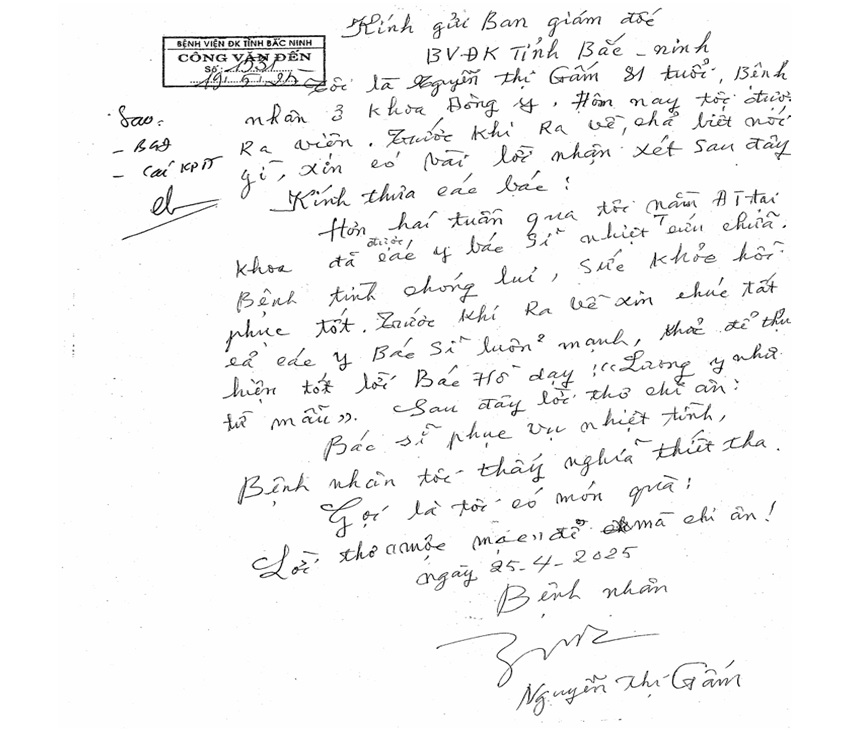 Kính gửi Ban giám đốc
BV-ĐK Tỉnh Bắc-ninh
BỆNH VIỆN ĐK TỈNH BẮC NINH
CÔNG VĂN ĐẾN
Số: 1331
19.5.25
Tôi là Nguyễn Thị Gấm 81 tuổi, Bệnh
nhân 3 khoa Đông y. Hôm nay tôi được
Ra viện. Trước khi Ra về, chả biết nói
gì, xin có vài lời nhận xét sau đây
Sao:
- BGĐ
- Các KP
Kính thưa các bác!
Hơn hai tuần qua tôi nằm ĐT tại
khoa đã được các y bác sĩ nhiệt tình cứu chữa.
Bệnh tình chóng lui, sức khỏe hồi
phục tốt. Trước khi Ra về xin chúc tất
cả các y Bác sĩ luôn mạnh, khỏe để thực
hiện tốt lời Bác Hồ dạy: "Lương y như
từ mẫu". Sau đây lời thơ chi ân:
Bác sĩ phục vụ nhiệt tình,
Bệnh nhân tôi thấy nghĩa thiết tha.
Gọi là tôi có món quà:
Lời thơ "mộc mạc" để mà chi ân!
ngày 25-4-2025
Bệnh nhân
Nguyễn Thị Gấm